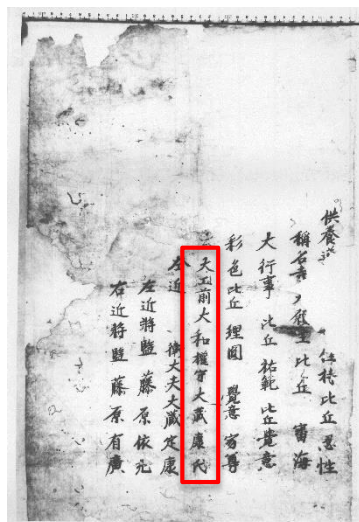 供養法 仁和比丘忍性
稱名寺 比丘 審海
大行事 比丘祐範 比丘覺意
彩色比丘 理圓 覺意 賓尊
大工前大和權守大藏康氏
左近 大夫大藏定康
左近將監 藤原依光
右近將監 藤原有廣